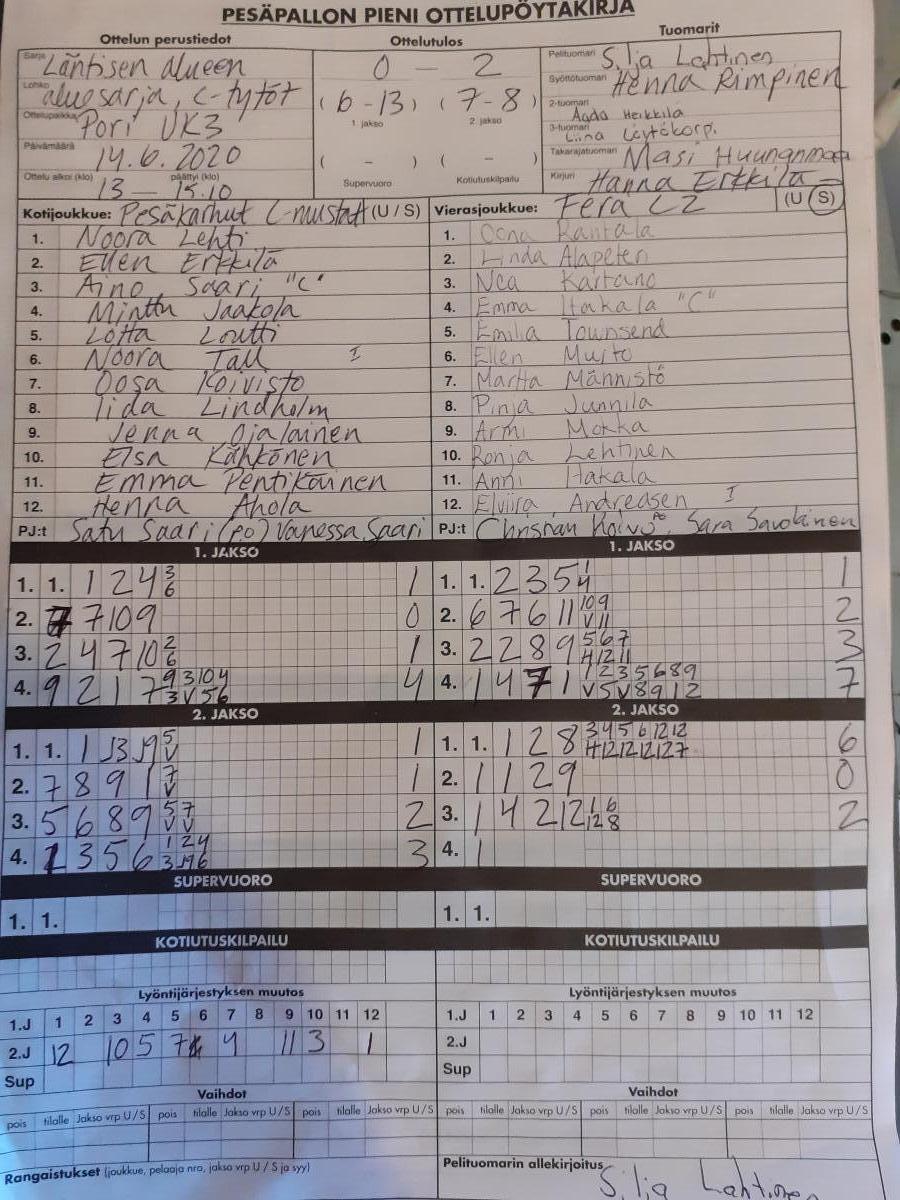 PESÄPALLON PIENI OTTELUPÖYTÄKIRJA
Ottelun perustiedot
Ottelutulos
Tuomarit
Sarja Läntisen alueen
Lohko aluesarja, C-tytöt
Ottelupaikka Pori UK3
Päivämäärä 14.6.2020
Ottelu alkoi (klo) päättyi (klo)
13 — 15.10
0 - 2
(6-13) (7-8)
1. jakso 2. jakso
( - ) ( - )
Supervuoro Kotiutuskilpailu
Pelituomari Silja Lahtinen
Syöttötuomari Henna Rimpinen
2-tuomari Aada Heikkilä
3-tuomari Liina Löytökorpi
Takarajatuomari Masi
Kirjuri Hanna Erkkilä
Kotijoukkue: Pesäkarhut C-mustat (U / S)
1. Noora Lehti
2. Ellen Erkkilä
3. Aino Saari "C"
4. Minttu Jaakola
5. Lotta Loutti
6. Noora Tall I
7. Oosa Koivisto
8. Iida Lindholm
9. Jenna Ojalainen
10. Elsa Kähkönen
11. Emma Pentikäinen
12. Henna Ahola
PJ:t Satu Saari (P.O) Vanessa Saari
Vierasjoukkue: Fera C2 (U / S)
1. Oona Rantala
2. Linda Alapeteri
3. Nea Kartano
4. Emma Itakala "C"
5. Emilia Townsend
6. Ellen Murto
7. Martta Männistö
8. Pinja Junnila
9. Armi Mokka
10. Ronja Lehtinen
11. Anni Hakala
12. Elviira Andreasen I
PJ:t Christian Koivu Sara Savolainen
1. JAKSO
1. 1. 1 2 4 3 6 1
2. 7 7 10 9 0
3. 2 4 7 10 2 6 1
4. 9 2 1 7 9 3 10 4 3 V 5 6 4
2. JAKSO
1. 1. 1 J3 J9 5 V 1
2. 7 8 9 1 7 V 1
3. 5 6 8 9 5 7 V V 2
4. 1 3 5 6 1 2 4 3 J4 6 3
SUPERVUORO
1. 1.
KOTIUTUSKILPAILU
1. JAKSO
1. 1. 2 3 5 1 4 1
2. 6 7 6 11 10 9 V 11 2
3. 2 2 8 9 5 6 7 H 12 11 3
4. 1 4 7 1 1 2 3 5 6 8 9 V 5 V 8 9 1 2 7
2. JAKSO
1. 1. 1 2 8 3 4 5 6 12 12 H 12 12 12 12 7 6
2. 1 1 2 9 0
3. 1 4 2 12 1 6 12 8 2
4. 1
SUPERVUORO
1. 1.
KOTIUTUSKILPAILU
Lyöntijärjestyksen muutos
1.J 1 2 3 4 5 6 7 8 9 10 11 12
2.J 12 10 5 7 4 11 3 1
Sup
Vaihdot
pois tilalle Jakso vrp U / S pois tilalle Jakso vrp U / S pois tilalle Jakso vrp U / S
Rangaistukset (joukkue, pelaaja nro, jakso vrp U / S ja syy)
Lyöntijärjestyksen muutos
1.J 1 2 3 4 5 6 7 8 9 10 11 12
2.J
Sup
Vaihdot
pois tilalle Jakso vrp U / S pois tilalle Jakso vrp U / S pois tilalle Jakso vrp U / S
Pelituomarin allekirjoitus
Silja Lahtinen